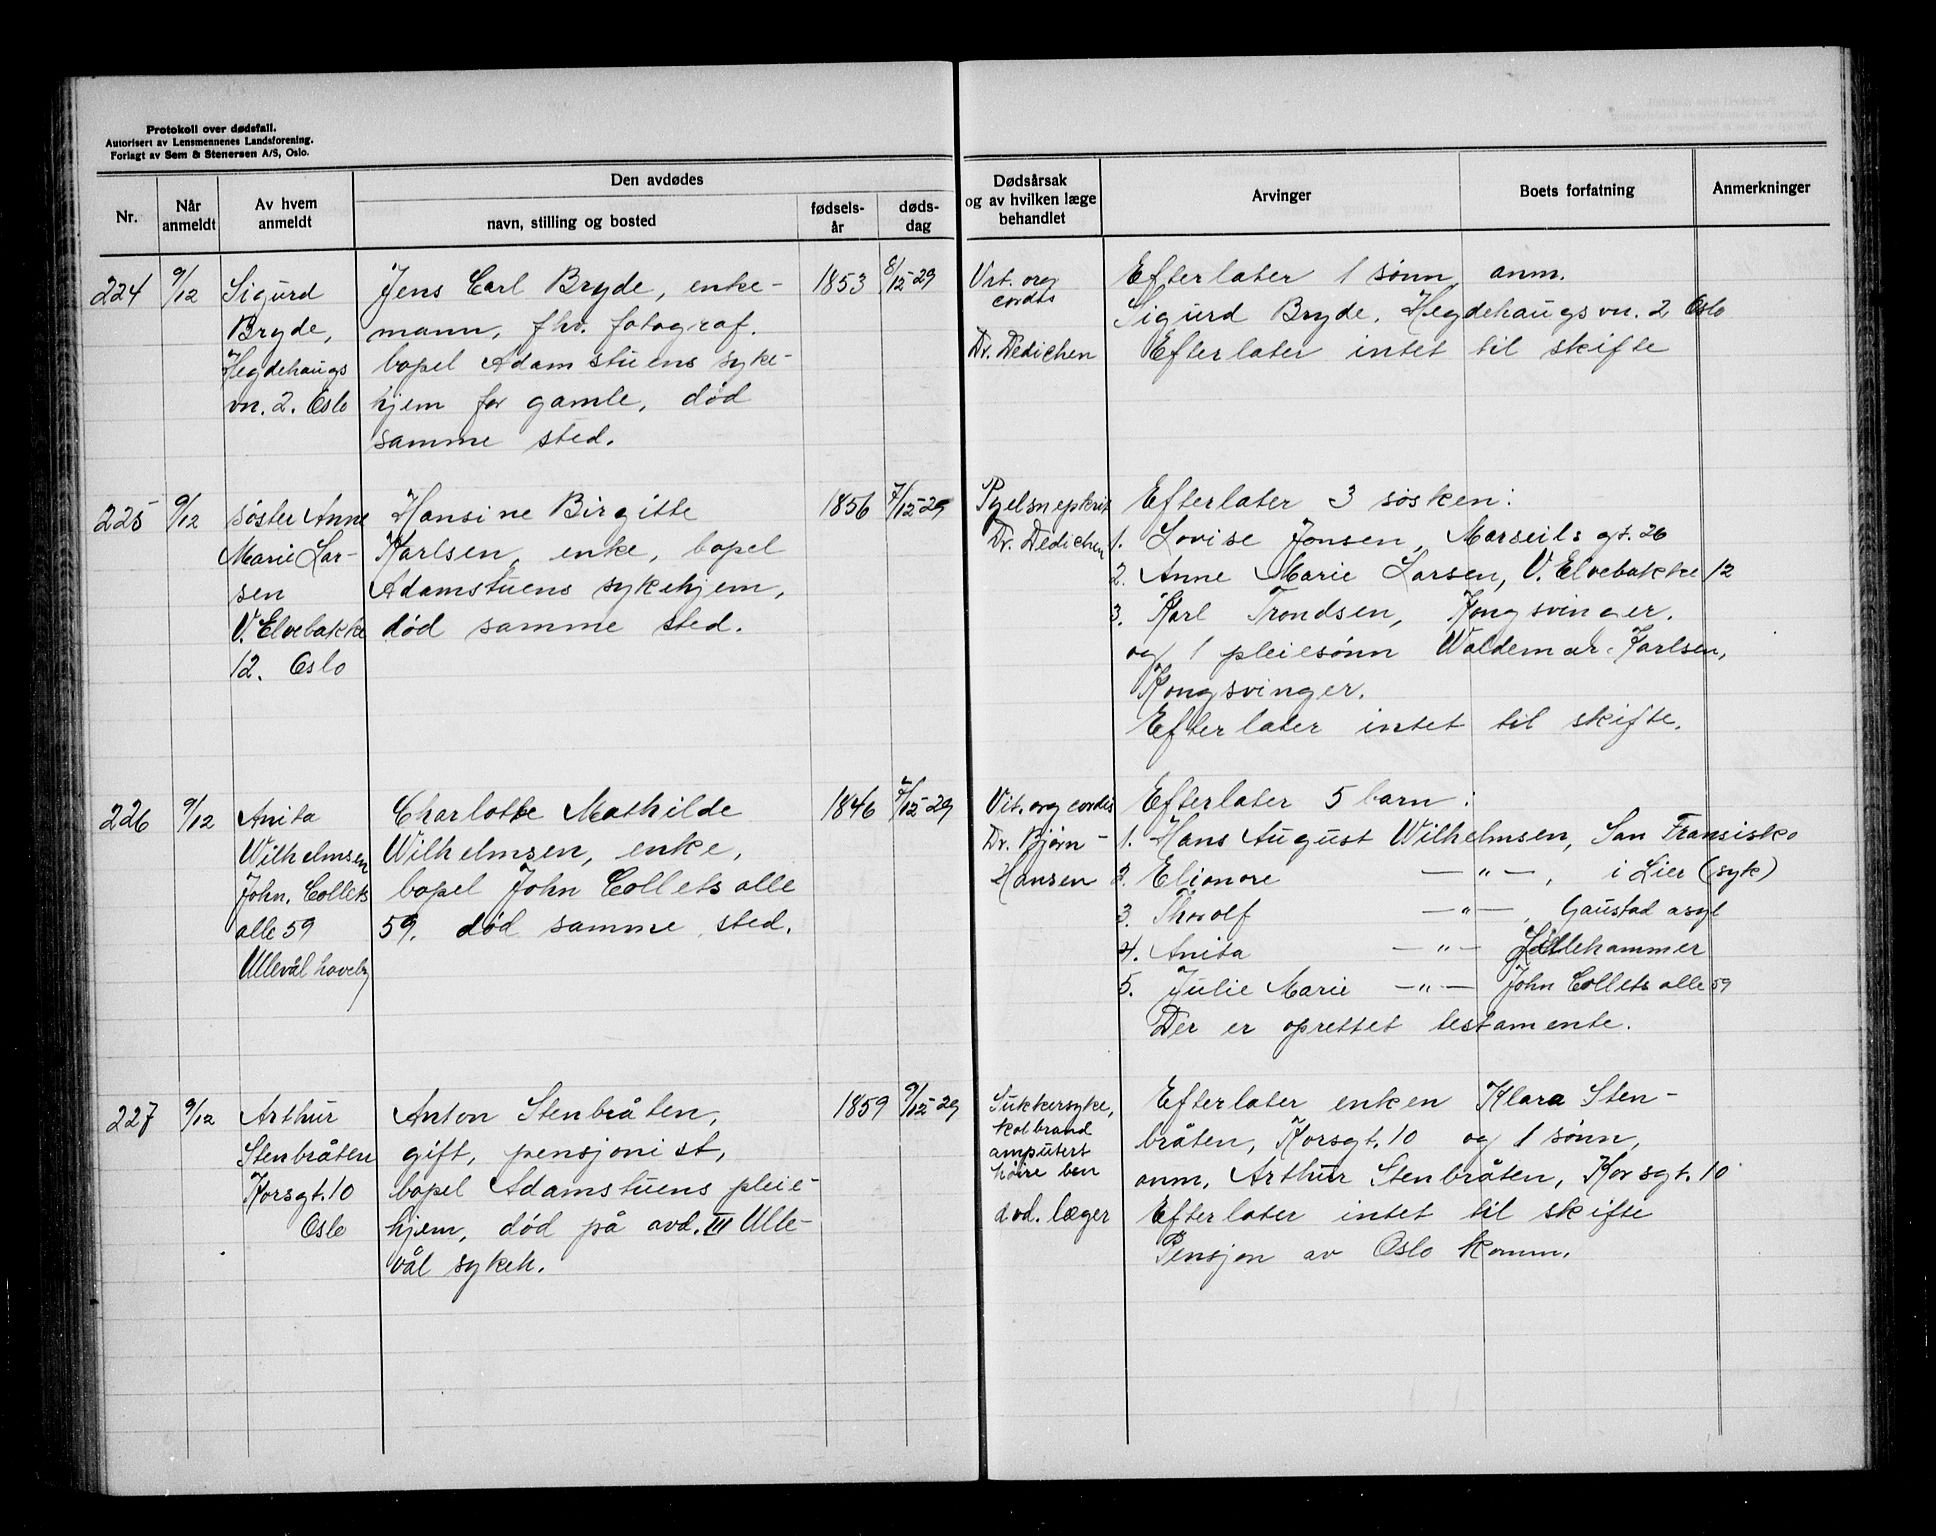 Protokoll over dødsfall.
Autorisert av Lensmennenes Landsforening.
Forlagt av Sem & Stenersen A/S, Oslo.
Nr.
Når anmeldt
Av hvem anmeldt
Den avdødes
navn, stilling og bosted
fødsels-år
døds-dag
Dødsårsak
og av hvilken læge
behandlet
Arvinger
Boets forfatning
Anmerkninger
224
9/12
Sigurd
Bryde,
Hegdehaugs
vn. 2. Oslo
Jens Carl Bryde, enke-
mann, fhv. fotograf.
bopel Adamstuens syke-
hjem for gamle, død
samme sted.
1853
8/12-29
Vit. org
cordis
Dr. Dedichen
Efterlater 1 sønn, anm.
Sigurd Bryde, Hegdehaugsvn. 2 Oslo
Efterlater intet til skifte
225
9/12
søster Anne
Marie Lar-
sen
V. Elvebakke
12. Oslo
Hansine Birgitte
Karlsen, enke, bopel
Adamstuens sykehjem,
død samme sted.
1856
7/12-29
Dr. Dedichen
Efterlater 3 søsken:
1. Lovise Jonsen, Marseils gt. 26
2. Anne Marie Larsen, V. Elvebakke 12
3. Karl Trondsen, Kongsvinger.
og 1 pleiesønn Waldemar Karlsen,
Kongsvinger.
Efterlater intet til skifte.
226
9/12
Anita
Wilhelmsen
John. Collets
alle 59
Ullevål haveby
Charlotte Mathilde
Wilhelmsen, enke,
bopel John Collets alle
59. død samme sted.
1846
7/12-29
Vit. org cordis
Dr. Bjørn-
Hansen
Efterlater 5 barn:
1. Hans August Wilhelmsen, San Fransisko
2. Elionore —"—, i Lier (syk)
3. Thorolf —"—, Gaustad asyl
4. Anita —"— Lillehammer
5. Julie Marie —"— John Collets alle 59
Der er oprettet testamente.
227
9/12
Arthur
Stenbråten
Korsgt. 10
Oslo
Anton Stenbråten,
gift, pensjonist,
bopel Adamstuens pleie-
hjem, død på avd. III Ulle-
vål sykeh.
1859
9/12-29
Sukkersyke,
kolbrand
amputert
høire ben
avd. læger
Efterlater enken Klara Sten-
bråten, Korsgt. 10 og 1 sønn,
anm. Arthur Stenbråten, Korsgt. 10
Efterlater intet til skifte
Pensjon av Oslo komm.